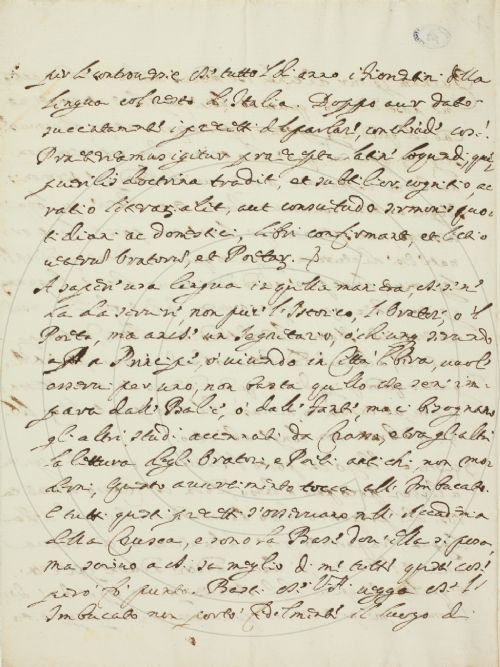 per le controversie che tutto 'l dì anno i Fiorentini della
lingua col resto d'Italia. Doppo aver dato
succintamente i precetti del parlare, conchiude così:
Praetereamus igitur praecepta latine loquendi, quae
puerilis doctrina tradit, et subtilior cognitio ac
ratio litterar alit, aut consuetudo sermonis quo
tidiani ac domestici, libri confirmant, et lectio
veterum Oratorum, et Poetar.
A sapere una lingua in quella maniera, che se n'
ha da servire, non pure l'Istorico, l'Oratore, o 'l
Poeta, ma anche un Segretario, o chiunque servendo
a Principe, o vivendo in Città libera, vuol
essere per uno, non basta quello che se n'im
para dalle Balie, o dalle fanti, ma ci bisognano
gli altri studi accennati da Crasso, e tra gli altri
la lettura degli Oratori, e Poeti antichi, non mo
derni, questo avvertimento tocca all' Imbucato.
E tutti questi precetti s'osservano nell' Accademia
della Crusca, e sono la Base dov' ella si posa,
ma scrivo a chi sa meglio di me tutte queste cose
però fo punto. Basti che V.S. vegga che l'
Imbucato non portò fedelmente il luogo di